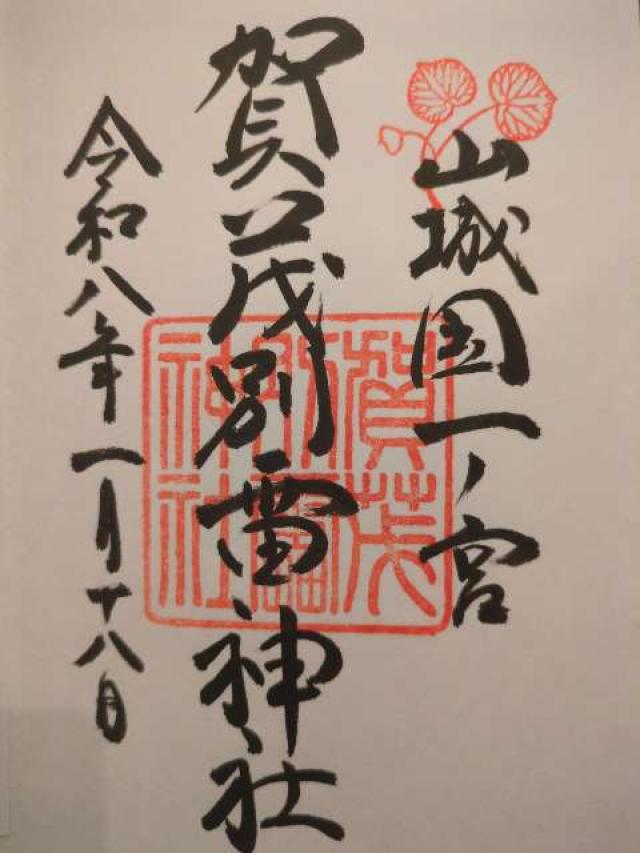 山城国一ノ宮
賀茂別雷神社
令和八年一月十八日
賀茂
別雷
神社